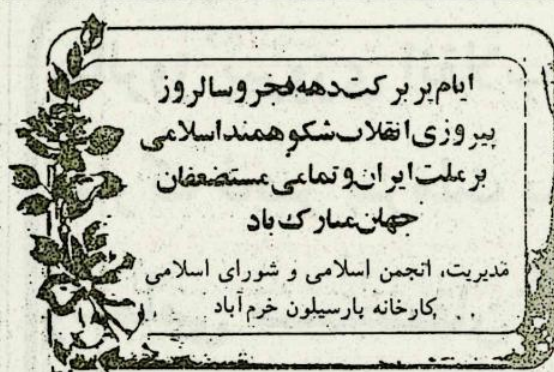 ایام پر برکت دهه فجر و سالروز
پیروزی انقلاب شکوهمند اسلامی
بر ملت ایران و تمامی مستضعفان
جهان مبارک باد
مدیریت، انجمن اسلامی و شورای اسلامی
کارخانه پارسیلون خرم آباد